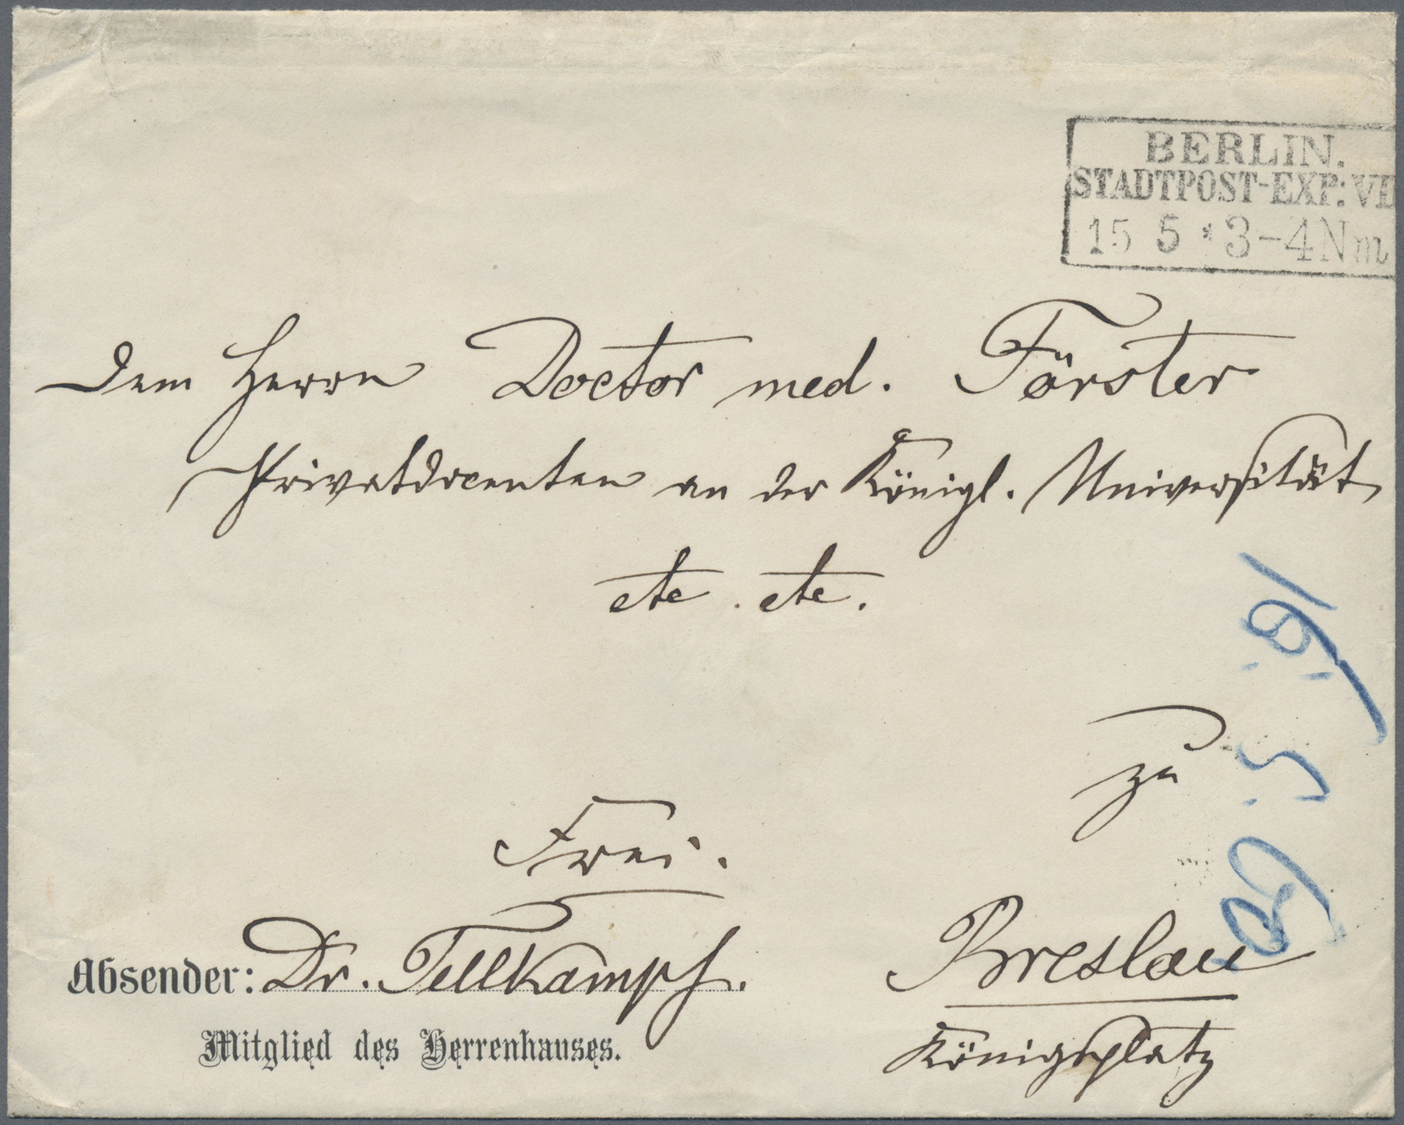 BERLIN.
STADTPOST-EXP: VII
15 5 * 3-4 Nm
Dem Herrn Doctor med. Förster
Privatdocenten an der Königl. Universität
etc. etc.
zu
Frei.
Absender: Dr. Tellkampf.
Breslau
Mitglied des Herrenhauses.
Königsplatz